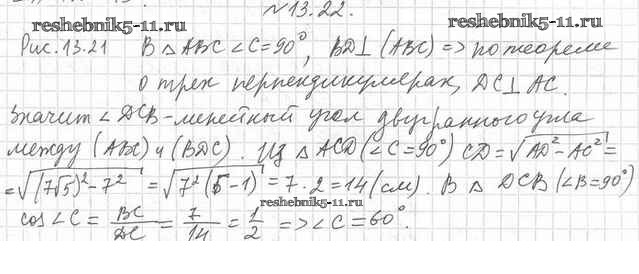 №13.22.
reshebnik5-11.ru reshebnik5-11.ru
Рис. 13.21 В △ ABC ∠C=90°, BD⊥(ABC) => по теореме
о трех перпендикулярах, DC⊥AC.
Значит ∠DCB-линейный угол двугранного угла
между (ABC) и (BDC). Из △ ACD (∠C=90°) CD=√AD²-AC² =
=√(7√5)²-7² =√7²(5-1) =7·2=14(см). В △ DCB (∠B=90°)
cos∠C = BC/DC = 7/14 = 1/2 => ∠C=60°.
reshebnik5-11.ru